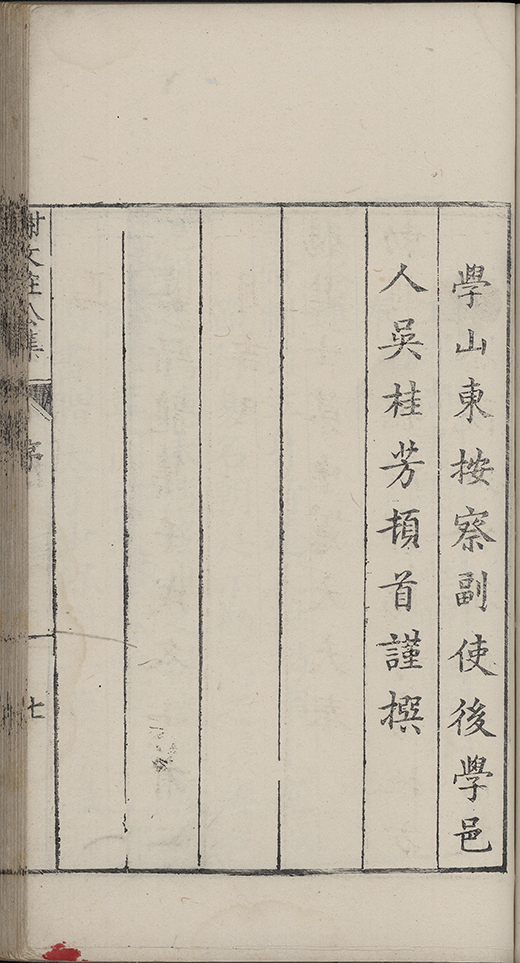 學山東按察副使後學邑
人吳桂芳頓首謹撰
謝文莊公集
序
七